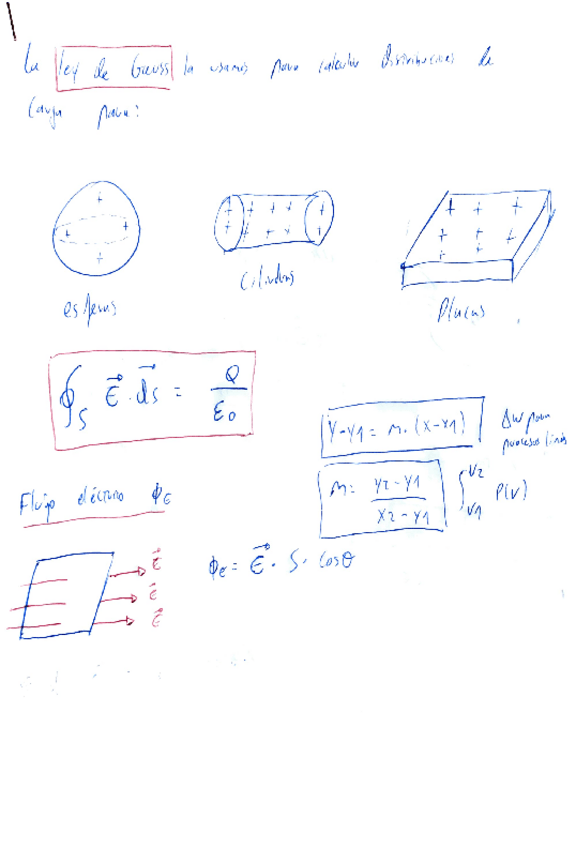 La ley de Gauss la usamos para calcular distribuciones de
carga para:
esferas
Cilindros
Placas
∮_S E⃗ · d⃗s = Q / ε₀
y-y1 = m · (x-x1)
ΔW para
procesos lin
m = (y2-y1) / (x2-y1)
∫_{V1}^{V2} P(V)
Flujo eléctrico ϕ_E
E⃗
E⃗
E⃗
ϕ_E = E⃗ · S · cosθ